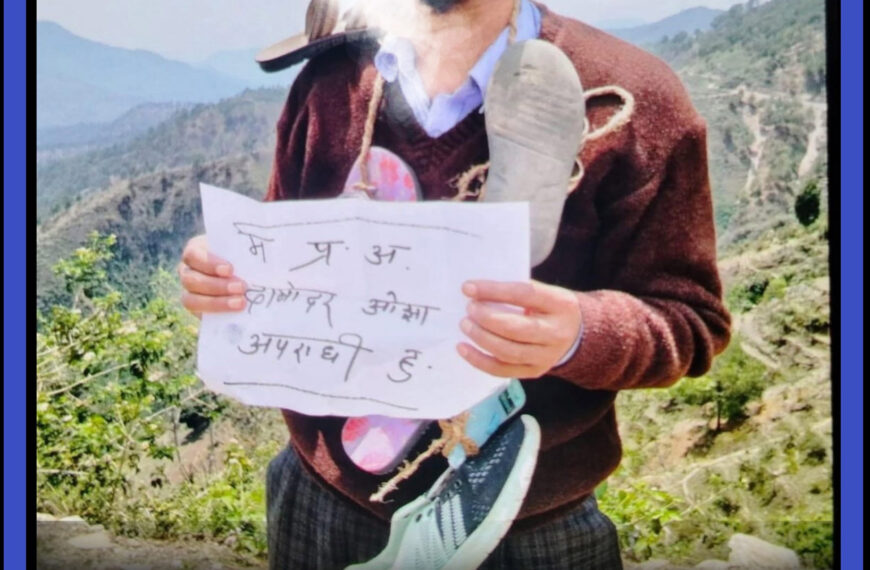 म प्र. अ.
दामोदर ओझा
अपराधी हु.